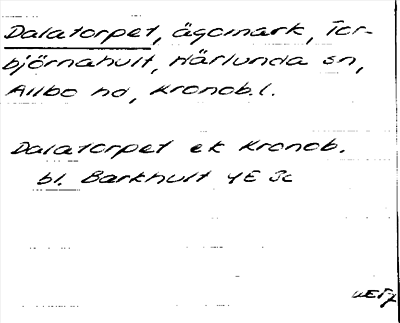 Dalatorpet, ägomark, Tor-
björnahult, Härlunda sn,
Allbo hd, Kronob.l.
Dalatorpet ek Kronob.
bl. Barkhult 4E Jc